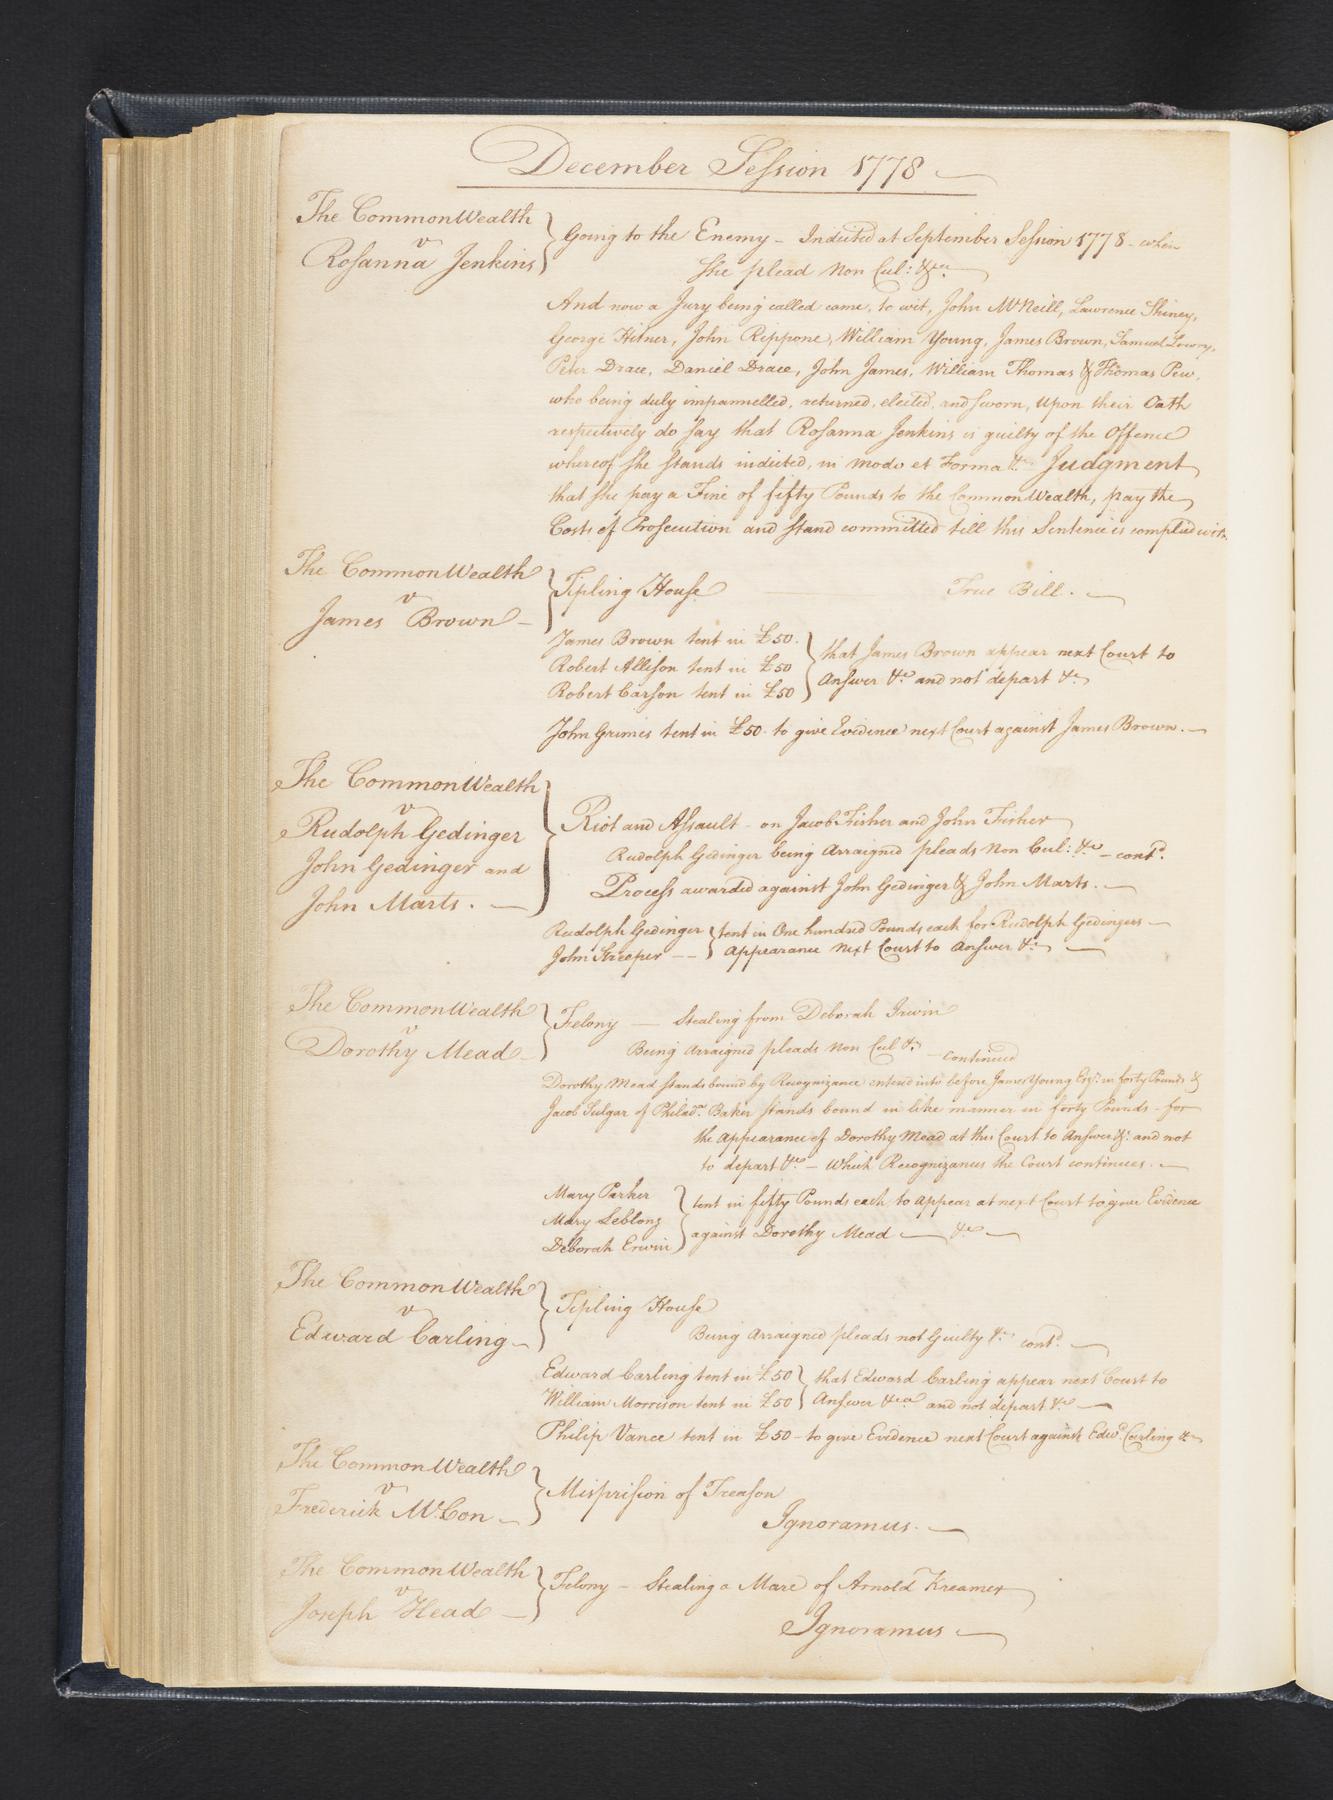 December Session 1778
The CommonWealth
v
Rosanna Jenkins
Going to the Enemy - Indicted at September Session 1778 - when
She plead Non Cul: &ca.
And now a Jury being called came, to wit, John McNeill, Lawrence Shiney,
George Hitner, John Rippone, William Young, James Brown, Samuel Lowry,
Peter Drace, Daniel Drace, John James, William Thomas & Thomas Pew,
who being duly impannelled, returned, elected, and sworn, upon their Oath
respectively do say that Rosanna Jenkins is guilty of the Offence
whereof She stands indicted, in modo et Forma &c. Judgment
that she pay a Fine of fifty Pounds to the CommonWealth, pay the
Costs of Prosecution and stand committed till this Sentence is complied with.
The CommonWealth
v
James Brown
Tipling House True Bill.
James Brown tent in £50.
Robert Allison tent in £50
Robert Carson tent in £50
that James Brown appear next Court to
Answer &c. and not depart &c.
John Grimes tent in £50. to give Evidence next Court against James Brown.
The CommonWealth
v
Rudolph Gedinger
John Gedinger and
John Marts.
Riot and Assault - on Jacob Fisher and John Fisher
Rudolph Gedinger being Arraigned pleads Non Cul: &c - contd.
Process awarded against John Gedinger & John Marts.
Rudolph Gedinger
John Streeper
tent in One hundred Pounds each for Rudolph Gedingers
Appearance Next Court to Answer &c.
The CommonWealth
v
Dorothy Mead
Felony - Stealing from Deborah Irwin
Being Arraigned pleads Non Cul &c. - continued
Dorothy Mead stands bound by Recognizance entered into before James Young Esqr. in forty Pounds &
Jacob Sulgar of Philada. Baker stands bound in like manner in forty Pounds - for
the Appearance of Dorothy Mead at this Court to Answer &c. and not
to depart &c. - Which Recognizances the Court continues.
Mary Parker
Mary Leblong
Deborah Erwin
tent in fifty Pounds each to appear at next Court to give Evidence
against Dorothy Mead &c
The CommonWealth
v
Edward Carling
Tipling House
Being Arraigned pleads not Guilty &c. contd.
Edward Carling tent in £50
William Morrison tent in £50
that Edward Carling appear next Court to
Answer &ca and not depart &c
Philip Vance tent in £50 - to give Evidence next Court against Edwd. Carling &c
The CommonWealth
v
Frederick McCon
Misprision of Treason
Ignoramus.
The CommonWealth
v
Joseph Head
Felony - Stealing a Mare of Arnold Kreamer
Ignoramus